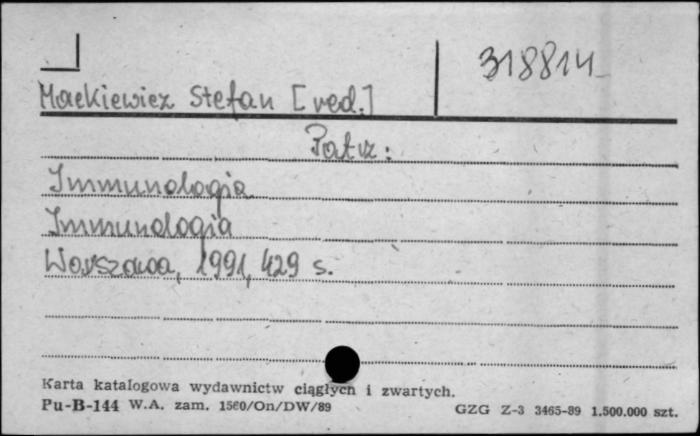 318814
Mackiewicz Stefan [red.]
Patrz:
Immunologia
Immunologia
Warszawa, 1991, 429 s.
Karta katalogowa wydawnictw ciągłych i zwartych.
Pu-B-144 W.A. zam. 1560/On/DW/89 GZG Z-3 3465-89 1.500.000 szt.